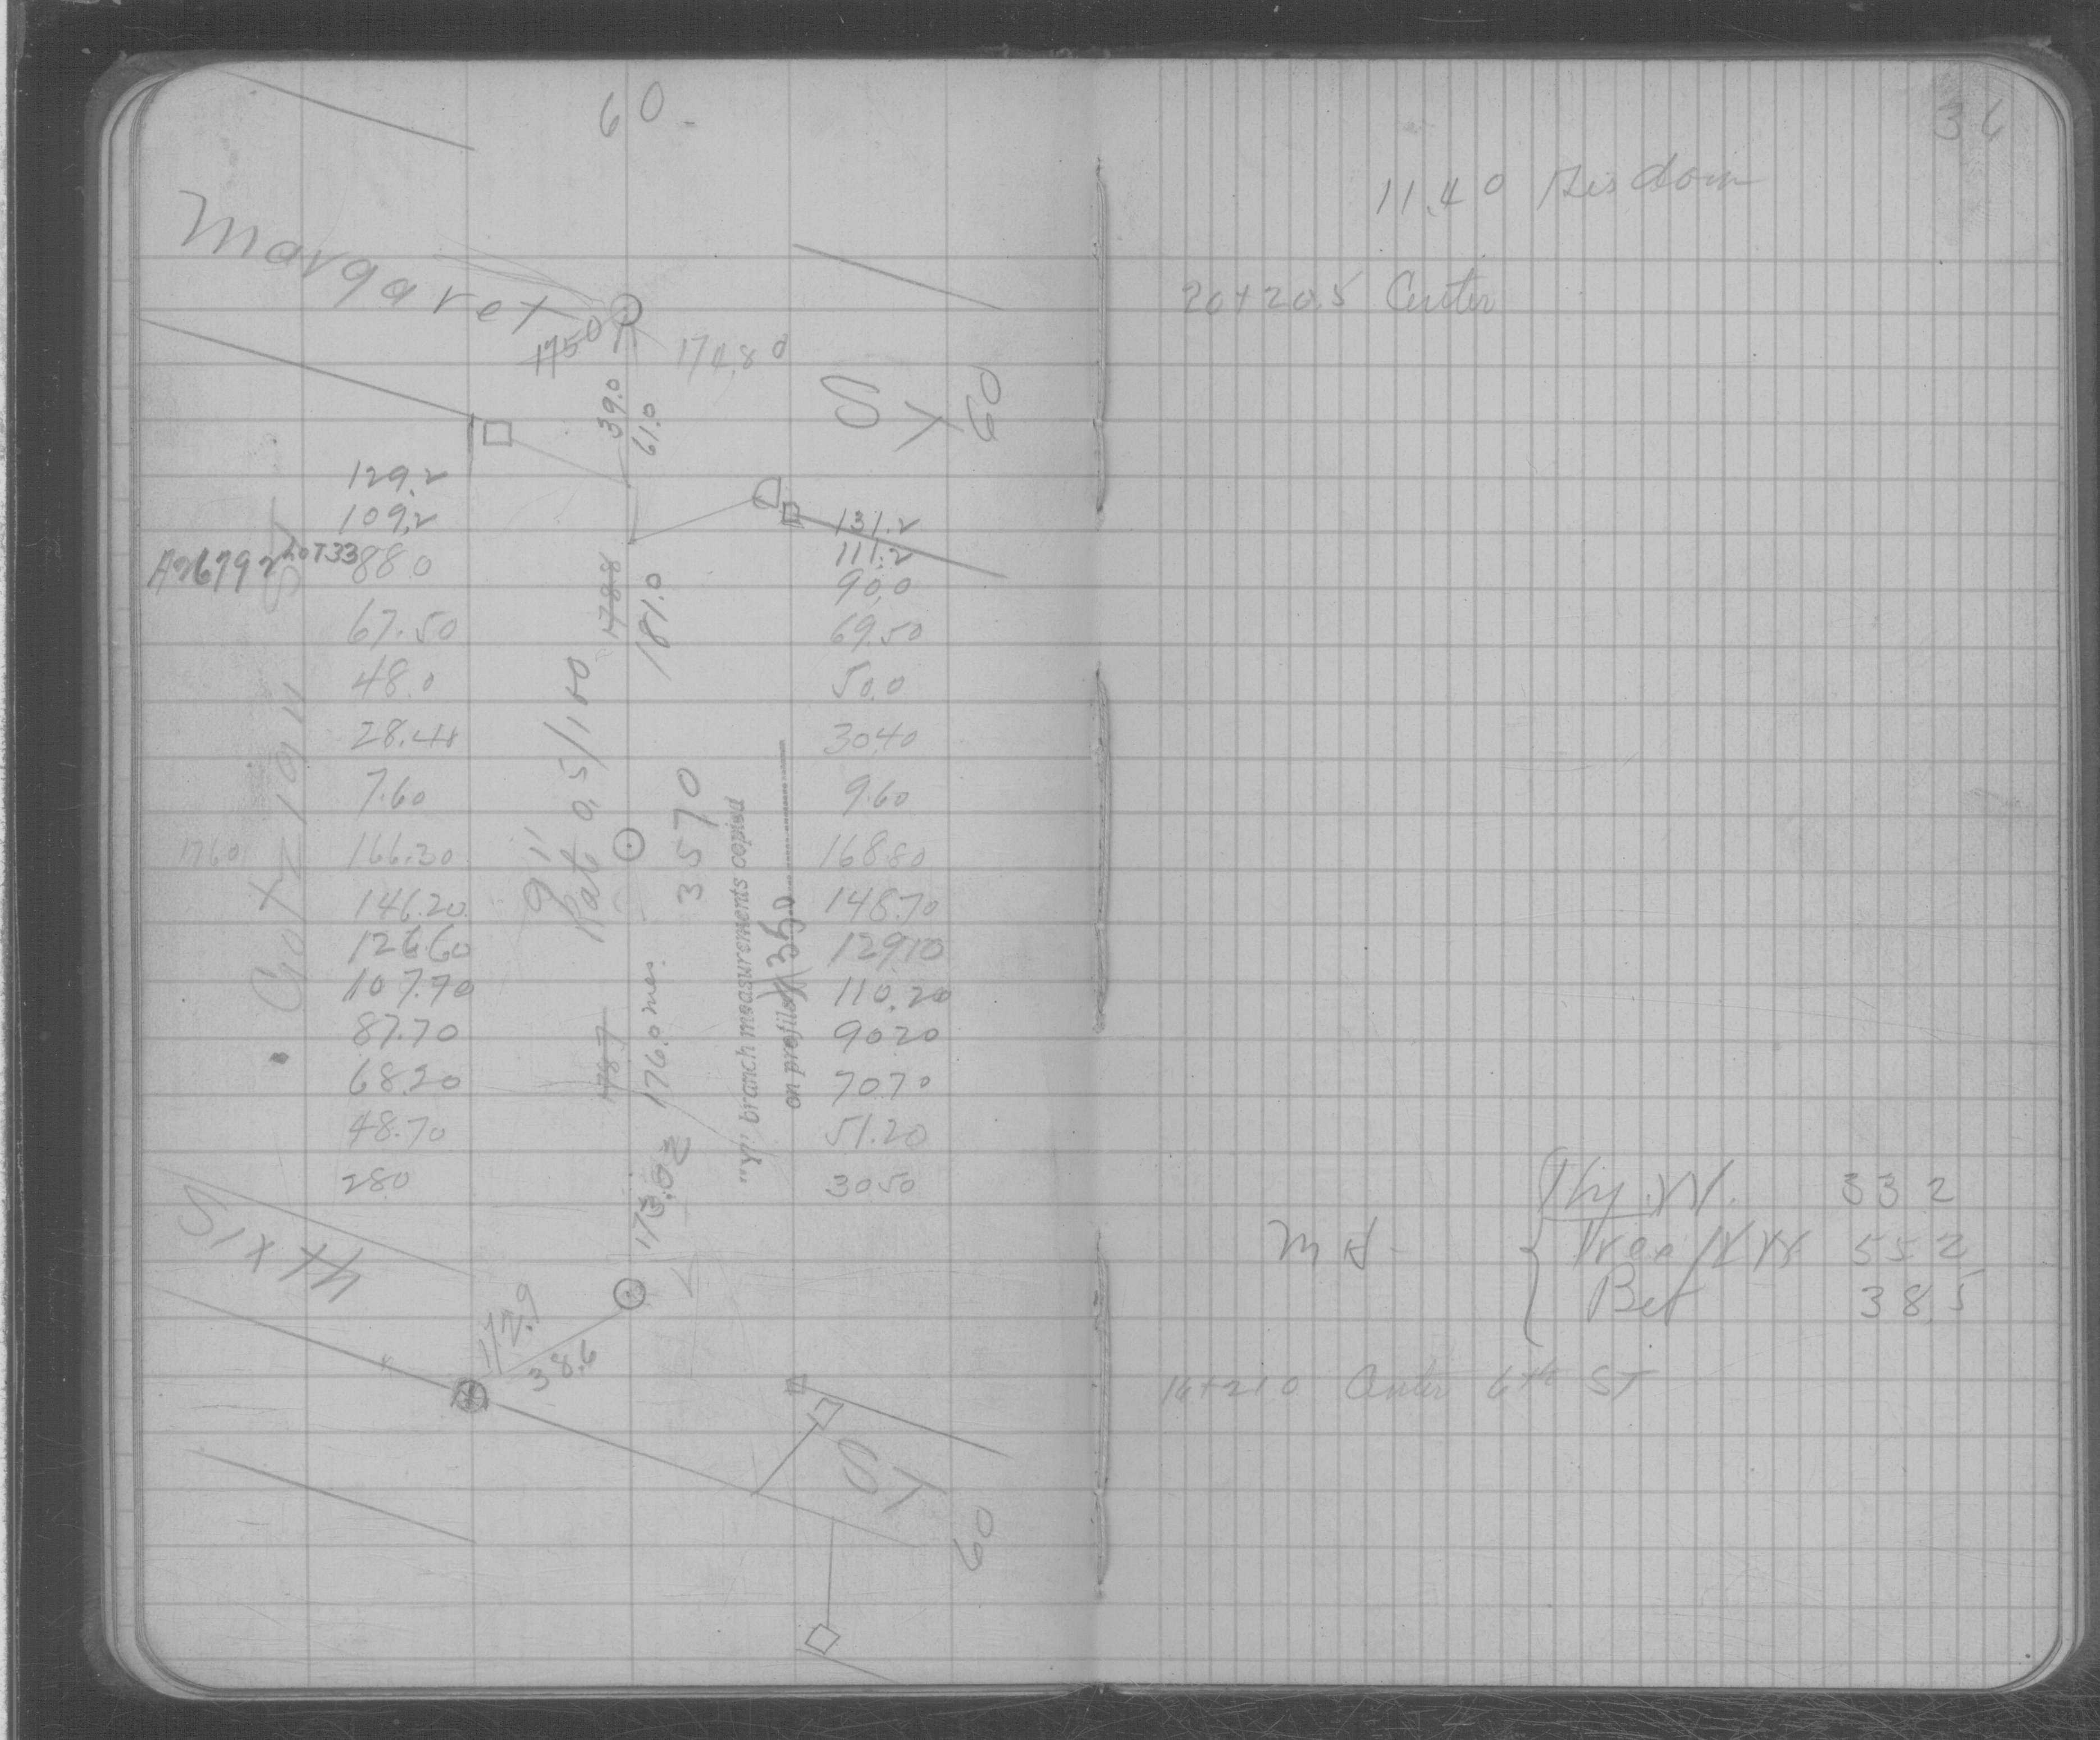 60.
Margaret
1750
174.80
St
60
39.0
61.0
129.2
109.2
A26792 LOT33
88.0
67.50
48.0
28.40
7.60
1760
166.30
146.20
126.60
107.70
87.70
68.20
48.70
280
131.2
111.2
90.0
69.50
50.0
30.40
9.60
168.80
148.70
129.10
110.20
90.20
70.70
51.20
30.50
178.8
181.0
9"
Rate 0.5/100
3570
"Y" branch measurements copied
on profile 35.0
178.7
176.0 mes.
Sixth
172.9
38.6
ST
60
36
11.40
20+20.5 Center
33 2
M H -
55 2
Bet 38.5
16+21.0 Center 6th ST